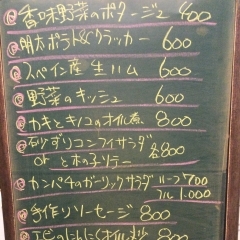 香味野菜のポタージュ 400
明太ポテト&クラッカー 600
スペイン産 生ハム 600
野菜のキッシュ 600
カキとキノコのオイル煮 800
砂ずりコンフィサラダ 各800
or きの子ソテー
カンパチのガーリックサラダ ハーフ 700
フル 1.000
手作りソーセージ 800
エビのにんにくオイル 800